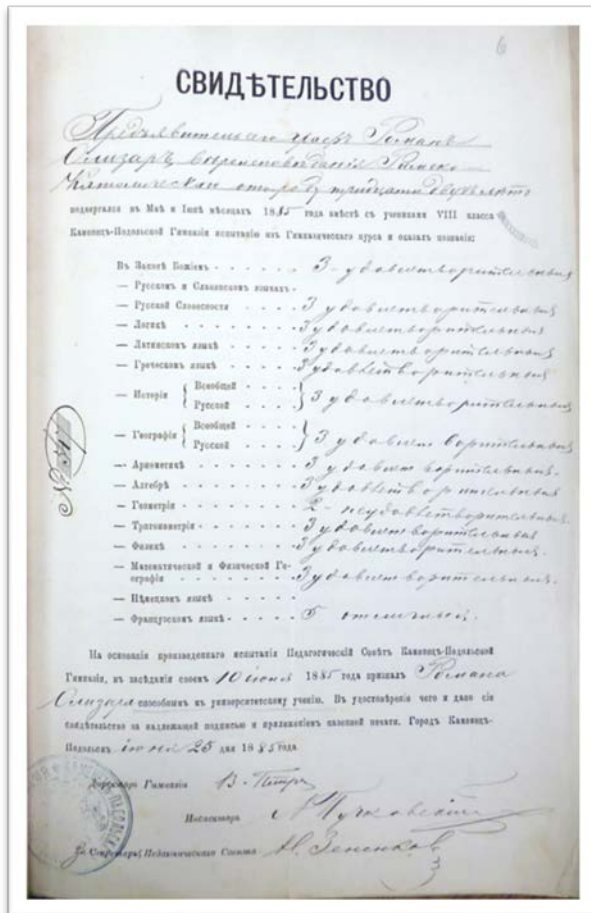 6
СВИДѢТЕЛЬСТВО
Предъявитель сего графъ Романъ
Олизаръ вѣроисповѣданія Римско-
Католическаго отъ роду тридцати двухъ лѣтъ
подвергался въ Маѣ и Іюнѣ мѣсяцахъ 1885 года вмѣстѣ съ учениками VIII класса
Каменецъ-Подольской Гимназіи испытанію изъ Гимназическаго курса и оказалъ познанія:
Въ Законѣ Божіемъ - - - - - 3 - удовлетворительныя
— Русскомъ и Славянскомъ языкахъ -
— Русской Словесности - - - - 3 удовлетворительныя
— Логикѣ - - - - - - - 3 удовлетворительныя
— Латинскомъ языкѣ - - - - 3 удовлетворительныя
— Греческомъ языкѣ - - - - 3 удовлетворительныя
— Исторіи { Всеобщей - - - -
Русской - - - - } 3 удовлетворительныя
— Географіи { Всеобщей - - - -
Русской - - - - } 3 удовлетворительныя
— Ариѳметикѣ - - - - - - 3 удовлетворительныя.
— Алгебрѣ - - - - - - - 3 удовлетворительныя
— Геометріи - - - - - - 2 - неудовлетворительныя.
— Тригонометріи - - - - - 3 удовлетворительныя
— Физикѣ - - - - - - - 3 удовлетворительныя.
— Математической и Физической Ге-
ографіи - - - - - - - 3 удовлетворительныя.
— Нѣмецкомъ языкѣ - - - -
— Французскомъ языкѣ - - - - 5 отличныя.
На основаніи произведеннаго испытанія Педагогическій Совѣтъ Каменецъ-Подольской
Гимназіи, въ засѣданіи своемъ 10 іюня 1885 года призналъ Романа
Олизара способнымъ къ университетскому ученію. Въ удостовѣреніе чего и дано сіе
свидѣтельство за надлежащей подписью и приложеніемъ казенной печати. Городъ Каменецъ-
Подольскъ іюня 25 дня 1885 года
Директоръ Гимназіи В. Петръ
Инспекторъ Пучковскій
Секретарь Педагогическаго Совѣта Н. Зененковъ